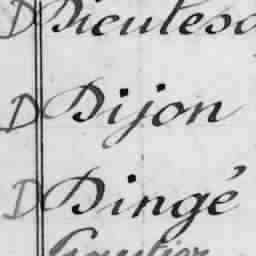 D Dieulesc
D Dijon
D Dingé
Gautier